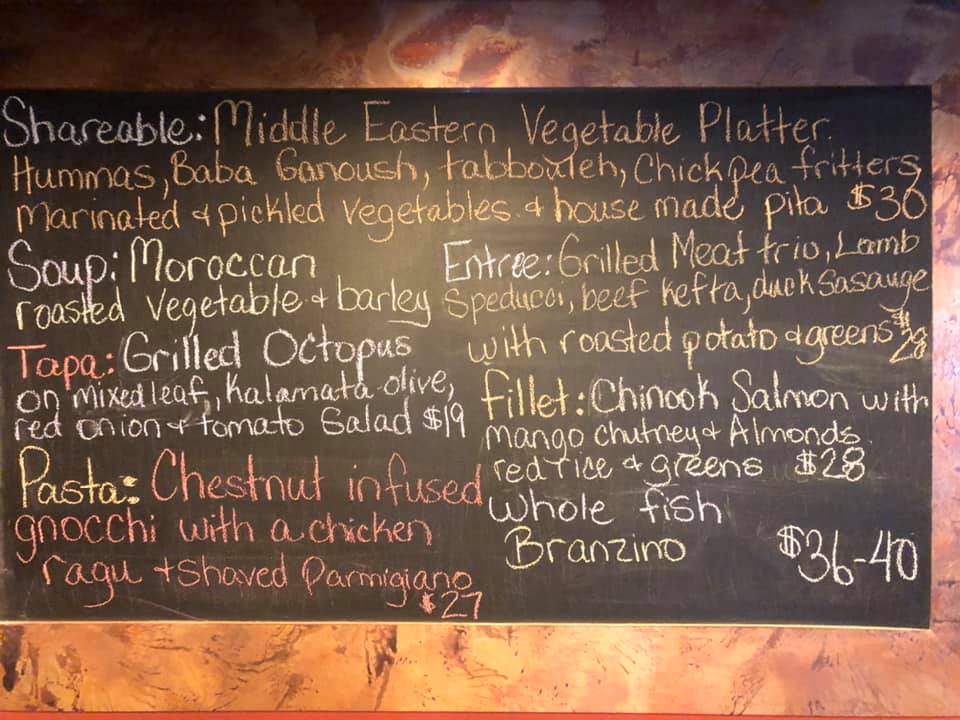 Shareable: Middle Eastern Vegetable Platter.
Hummas, Baba Ganoush, tabbouleh, Chickpea fritters,
Marinated & pickled vegetables & house made pita $30
Soup: Moroccan
roasted vegetable & barley
Tapa: Grilled Octopus
on mixed leaf, Kalamata olive,
red onion & tomato Salad $19
Pasta: Chestnut infused
gnocchi with a chicken
ragu & shaved Parmigiano
$27
Entree: Grilled Meat trio, Lamb
Speducci, beef kefta, duck Sasauge
with roasted potato & greens $28
fillet: Chinook Salmon with
Mango chutney & Almonds.
red rice & greens $28
Whole fish
Branzino $36-40